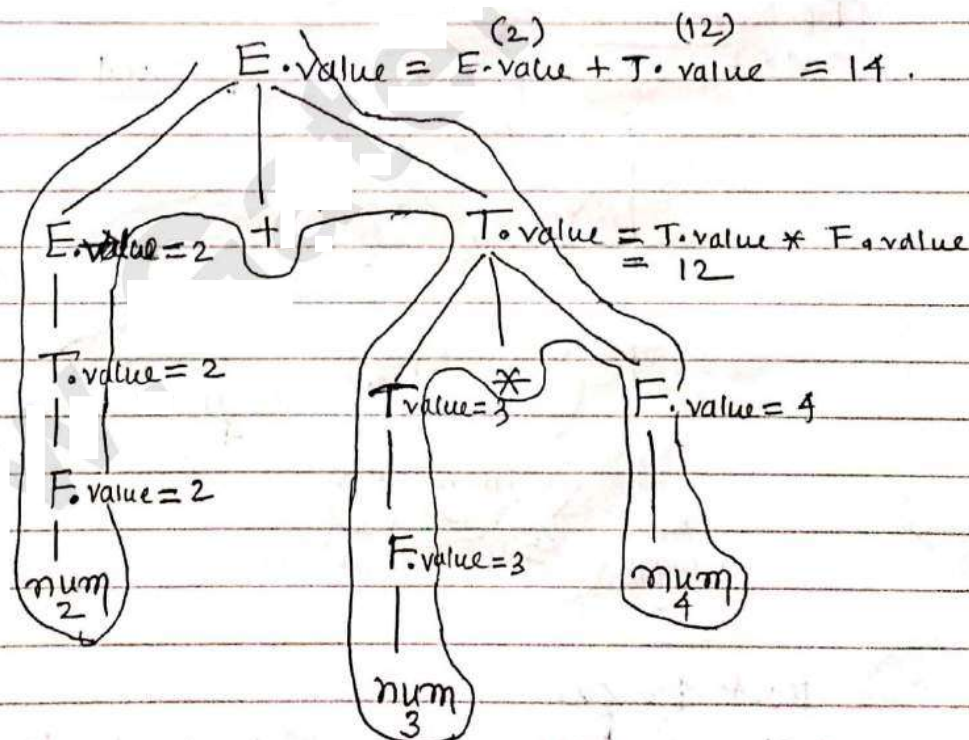 (2) (12)
E.value = E.value + T.value = 14.
E.value = 2 + T.value = T.value * F.value
= 12
T.value = 2
T value = 3 * F.value = 4
F.value = 2
F.value = 3
num num
2 4
num
3